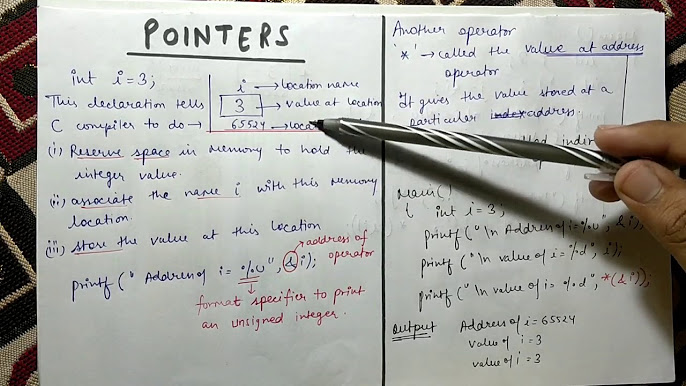 POINTERS
int i=3;
This declaration tells
C compiler to do →
i → location name
3 → value at location
65524 → locat
(i) Reserve space in memory to hold the
integer value.
(ii) associate the name i with this memory
location.
(iii) store the value at this location
→ address of
operator
printf (" Address of i = %u", &i);
format specifier to print
an unsigned integer.
Another operator
'*' → called the value at address
operator
It gives the value stored at a
particular address.
indir
Main( )
{ int i = 3;
printf ("\n Address of i = %u", &i);
printf ("\n value of i = %d", i);
printf ("\n value of i = %d", *(&i));
output Address of i = 65524
value of i = 3
value of i = 3